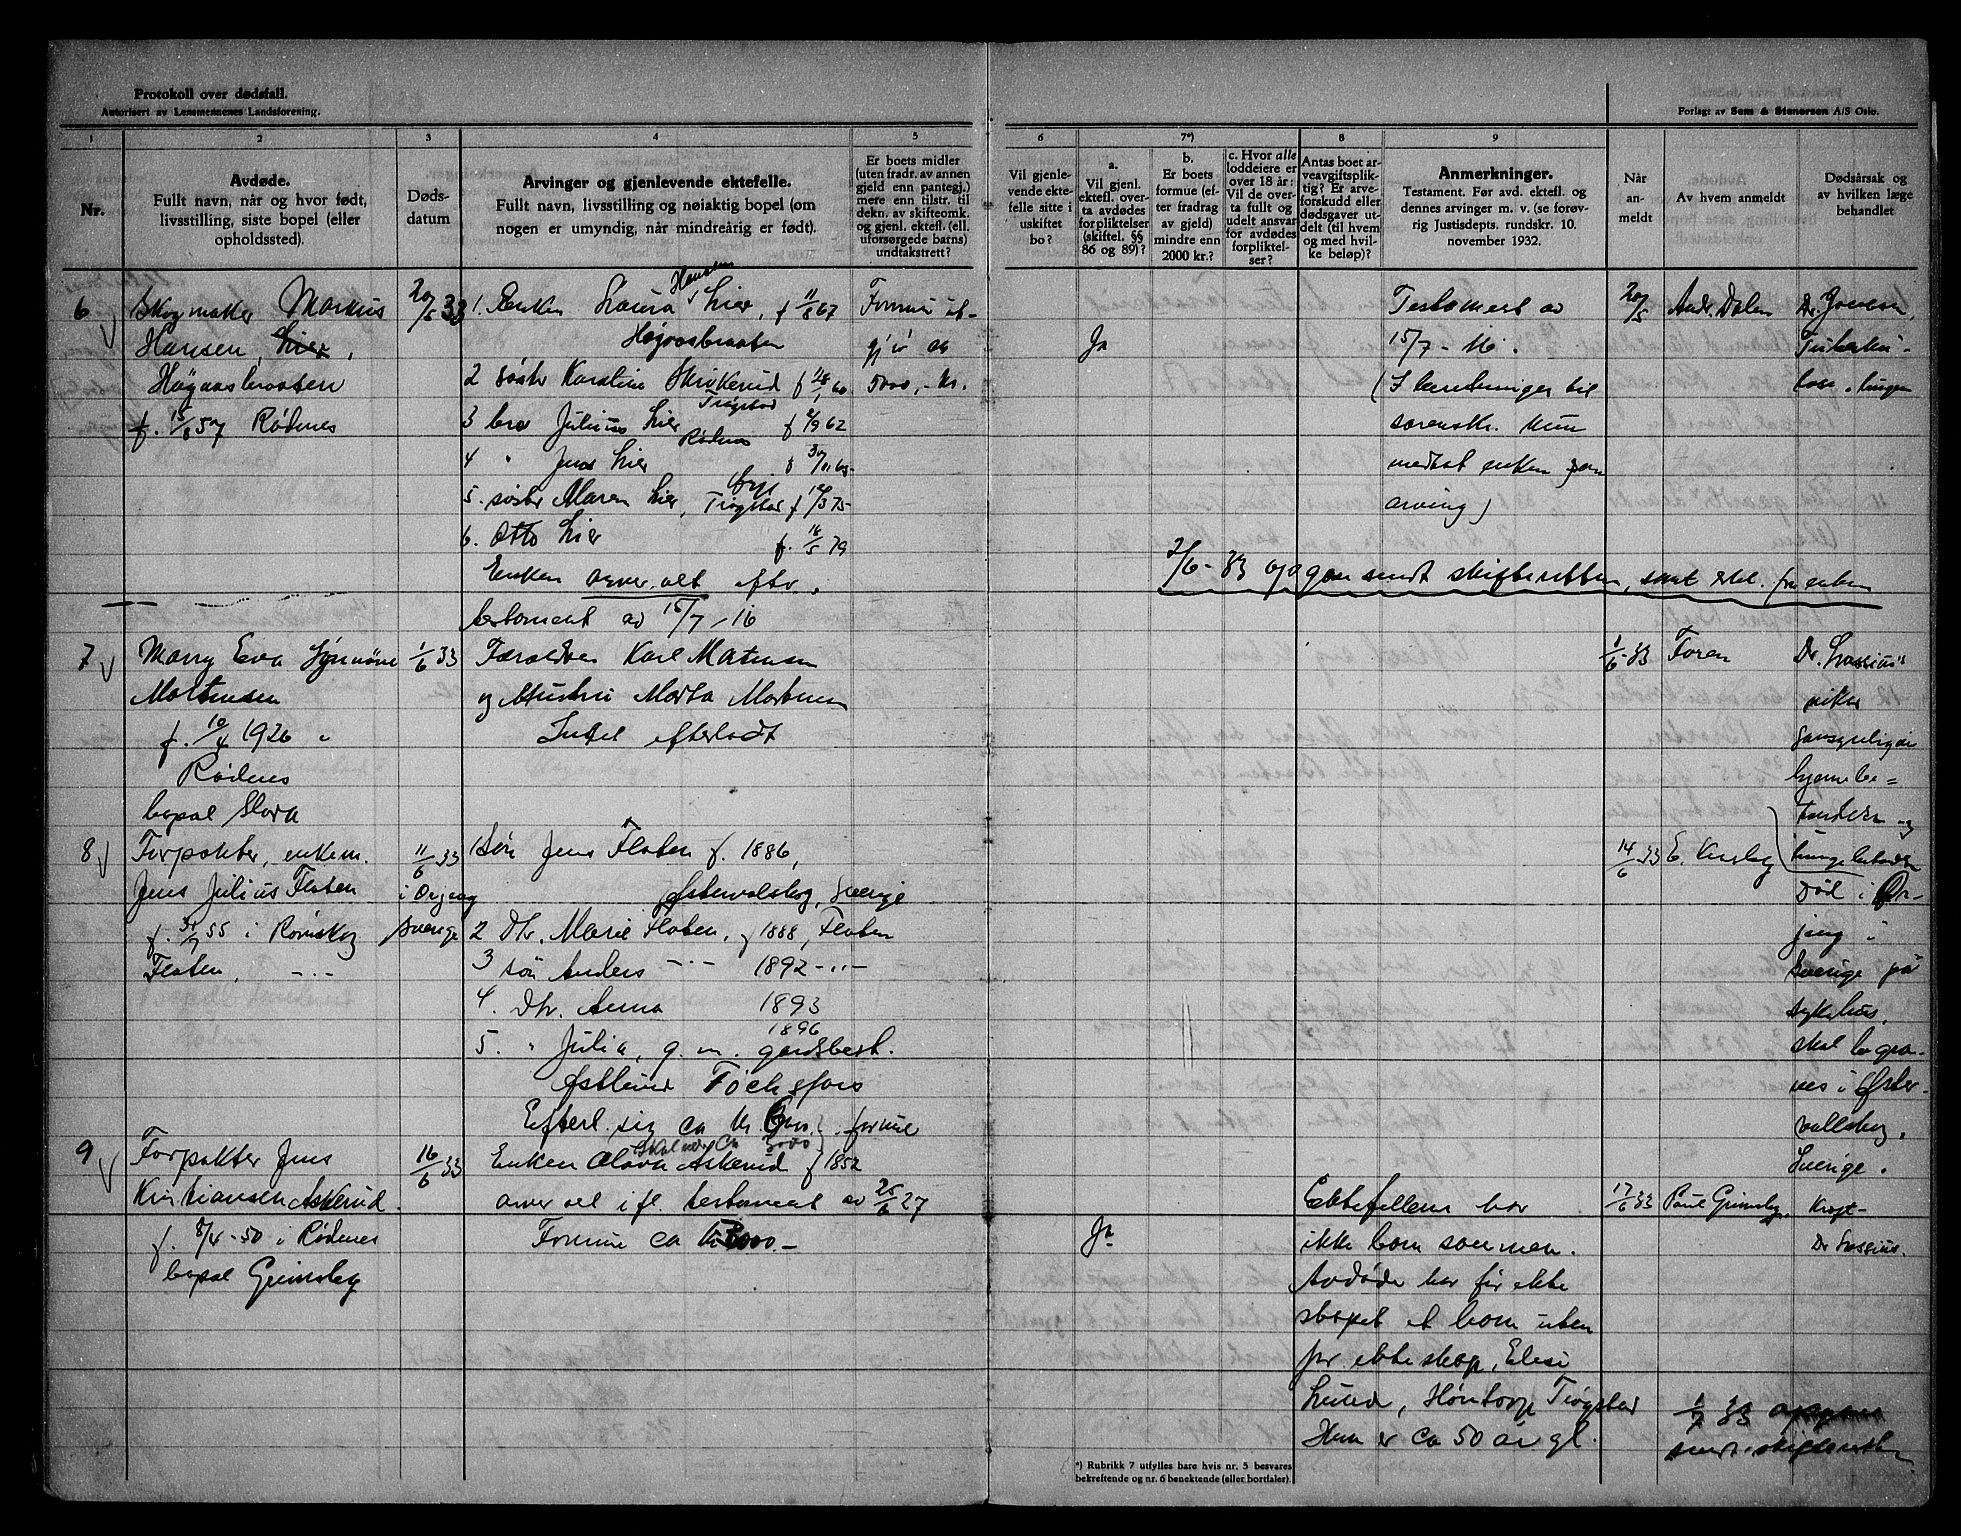 Protokoll over dødsfall.
Autorisert av Lensmennenes Landsforening.
Forlagt av Sem & Stenersen A/S Oslo.
1 2 3 4 5 6 7*) 8 9
Nr.
Avdøde.
Fullt navn, når og hvor født,
livsstilling, siste bopel (eller
opholdssted).
Døds-
datum
Arvinger og gjenlevende ektefelle.
Fullt navn, livsstilling og nøiaktig bopel (om
nogen er umyndig, når mindreårig er født).
Er boets midler
(uten fradr. av annen
gjeld enn pantegj.)
mere enn tilstr. til
dekn. av skifteomk.
og gjenl. ektefl. (ell.
uforsørgede barns)
undtakstrett?
Vil gjenle-
vende ekte-
felle sitte i
uskiftet
bo?
a.
Vil gjenl.
ektefl. over-
ta avdødes
forpliktelser
(skiftel. §§
86 og 89)?
b.
Er boets
formue (ef-
ter fradrag
av gjeld)
mindre enn
2000 kr.?
c. Hvor alle
loddeiere er
over 18 år:
Vil de over-
ta fullt og
udelt ansvar
for avdødes
forpliktel-
ser?
Antas boet ar-
veavgiftsplik-
tig? Er arve-
forskudd eller
dødsgaver ut-
delt (til hvem
og med hvil-
ke beløp)?
Anmerkninger.
Testament. Før avd. ektefl. og
dennes arvinger m. v. (se forøv-
rig Justisdepts. rundskr. 10.
november 1932.
Når
an-
meldt
Av hvem anmeldt
Dødsårsak og
av hvilken læge
behandlet
6
Skogmaker Markus
Hansen, Lier,
Høgaasbraaten
f. 15/8 57 Rødenes
20/5 33
1. Enken Laura Hansen Lier, f 11/8 67
Høgaasbraaten
2 søster Karstine Skrikerud f 18/1 60
Trøgstad
3 bror Julius Lier f 2/9 62
Rødenes
4 " Jens Lier
5. søster Maren Lier, Trøgstad
6. Otto Lier f. 16/5 79
Enken arver alt efter
testament av 15/7-16
Formue ut-
gjør ca
5000,- kr.
Ja
Testament av
15/7-16.
(I beretninger til
sorenskr. kun
medtat enken som
arving)
20/5 Andr. Dalen
Dr. Jonesen,
Tuberku-
lose i lungen
2/6-33 opgave sendt skifteretten, samt erkl. fra enken
7
Marry Eva Synnøve
Mortensen
f. 10/4 1926
Rødenes
bopel Slora
1/6 33
Foreldre Karl Mortensen
og Hustru Marta Mortensen
Intet efterladt
1/6-33 Faren
Dr. Lassius
sikker
sansynligvis
hjernebe-
tendelse og
lungebetendelse
8
Forpakter, enkem.
Jens Julius Floten
f. 30/7 55 i Rømskog
Floten, -"-
11/6 33
i Ørjeng
Sverige
1 Søn Jens Floten f. 1886,
Østervalskog, Sverige
2 Dtr. Marie Floten, f 1888, Floten
3 søn Anders -"- 1892 -"-
4. Dtr. Anna 1893
1896
5. " Julia, g. m. gaardsbest.
Østlund Töcksfors
Efterl. sig ca kr. formue
14/6 33 E. Krosby
Død i Ør-
jeng i
Sverige på
sykehus,
skal begra-
ves i Øster-
vallskog,
Sverige.
9
Forpakter Jens
Kristiansen Askerud.
f. 8/4-50 i Rødenes
bopel Grimsby
16/6 33
Enken Olava Askerud f 1852
arver alt ifl. testament av 25/6 27
Formue ca kr 3000.-
Ja
Ektefellene har
ikke barn sammen.
Avdøde har før ekte
skapet et barn uten
for ekteskap, Elise
Lund, Høntorp Trøgstad
Hun er ca 50 år gl.
17/6 33 Paul Grimsby,
Kreft-
Dr Lassius.
1/7 33 opgave
sendt skifteretten